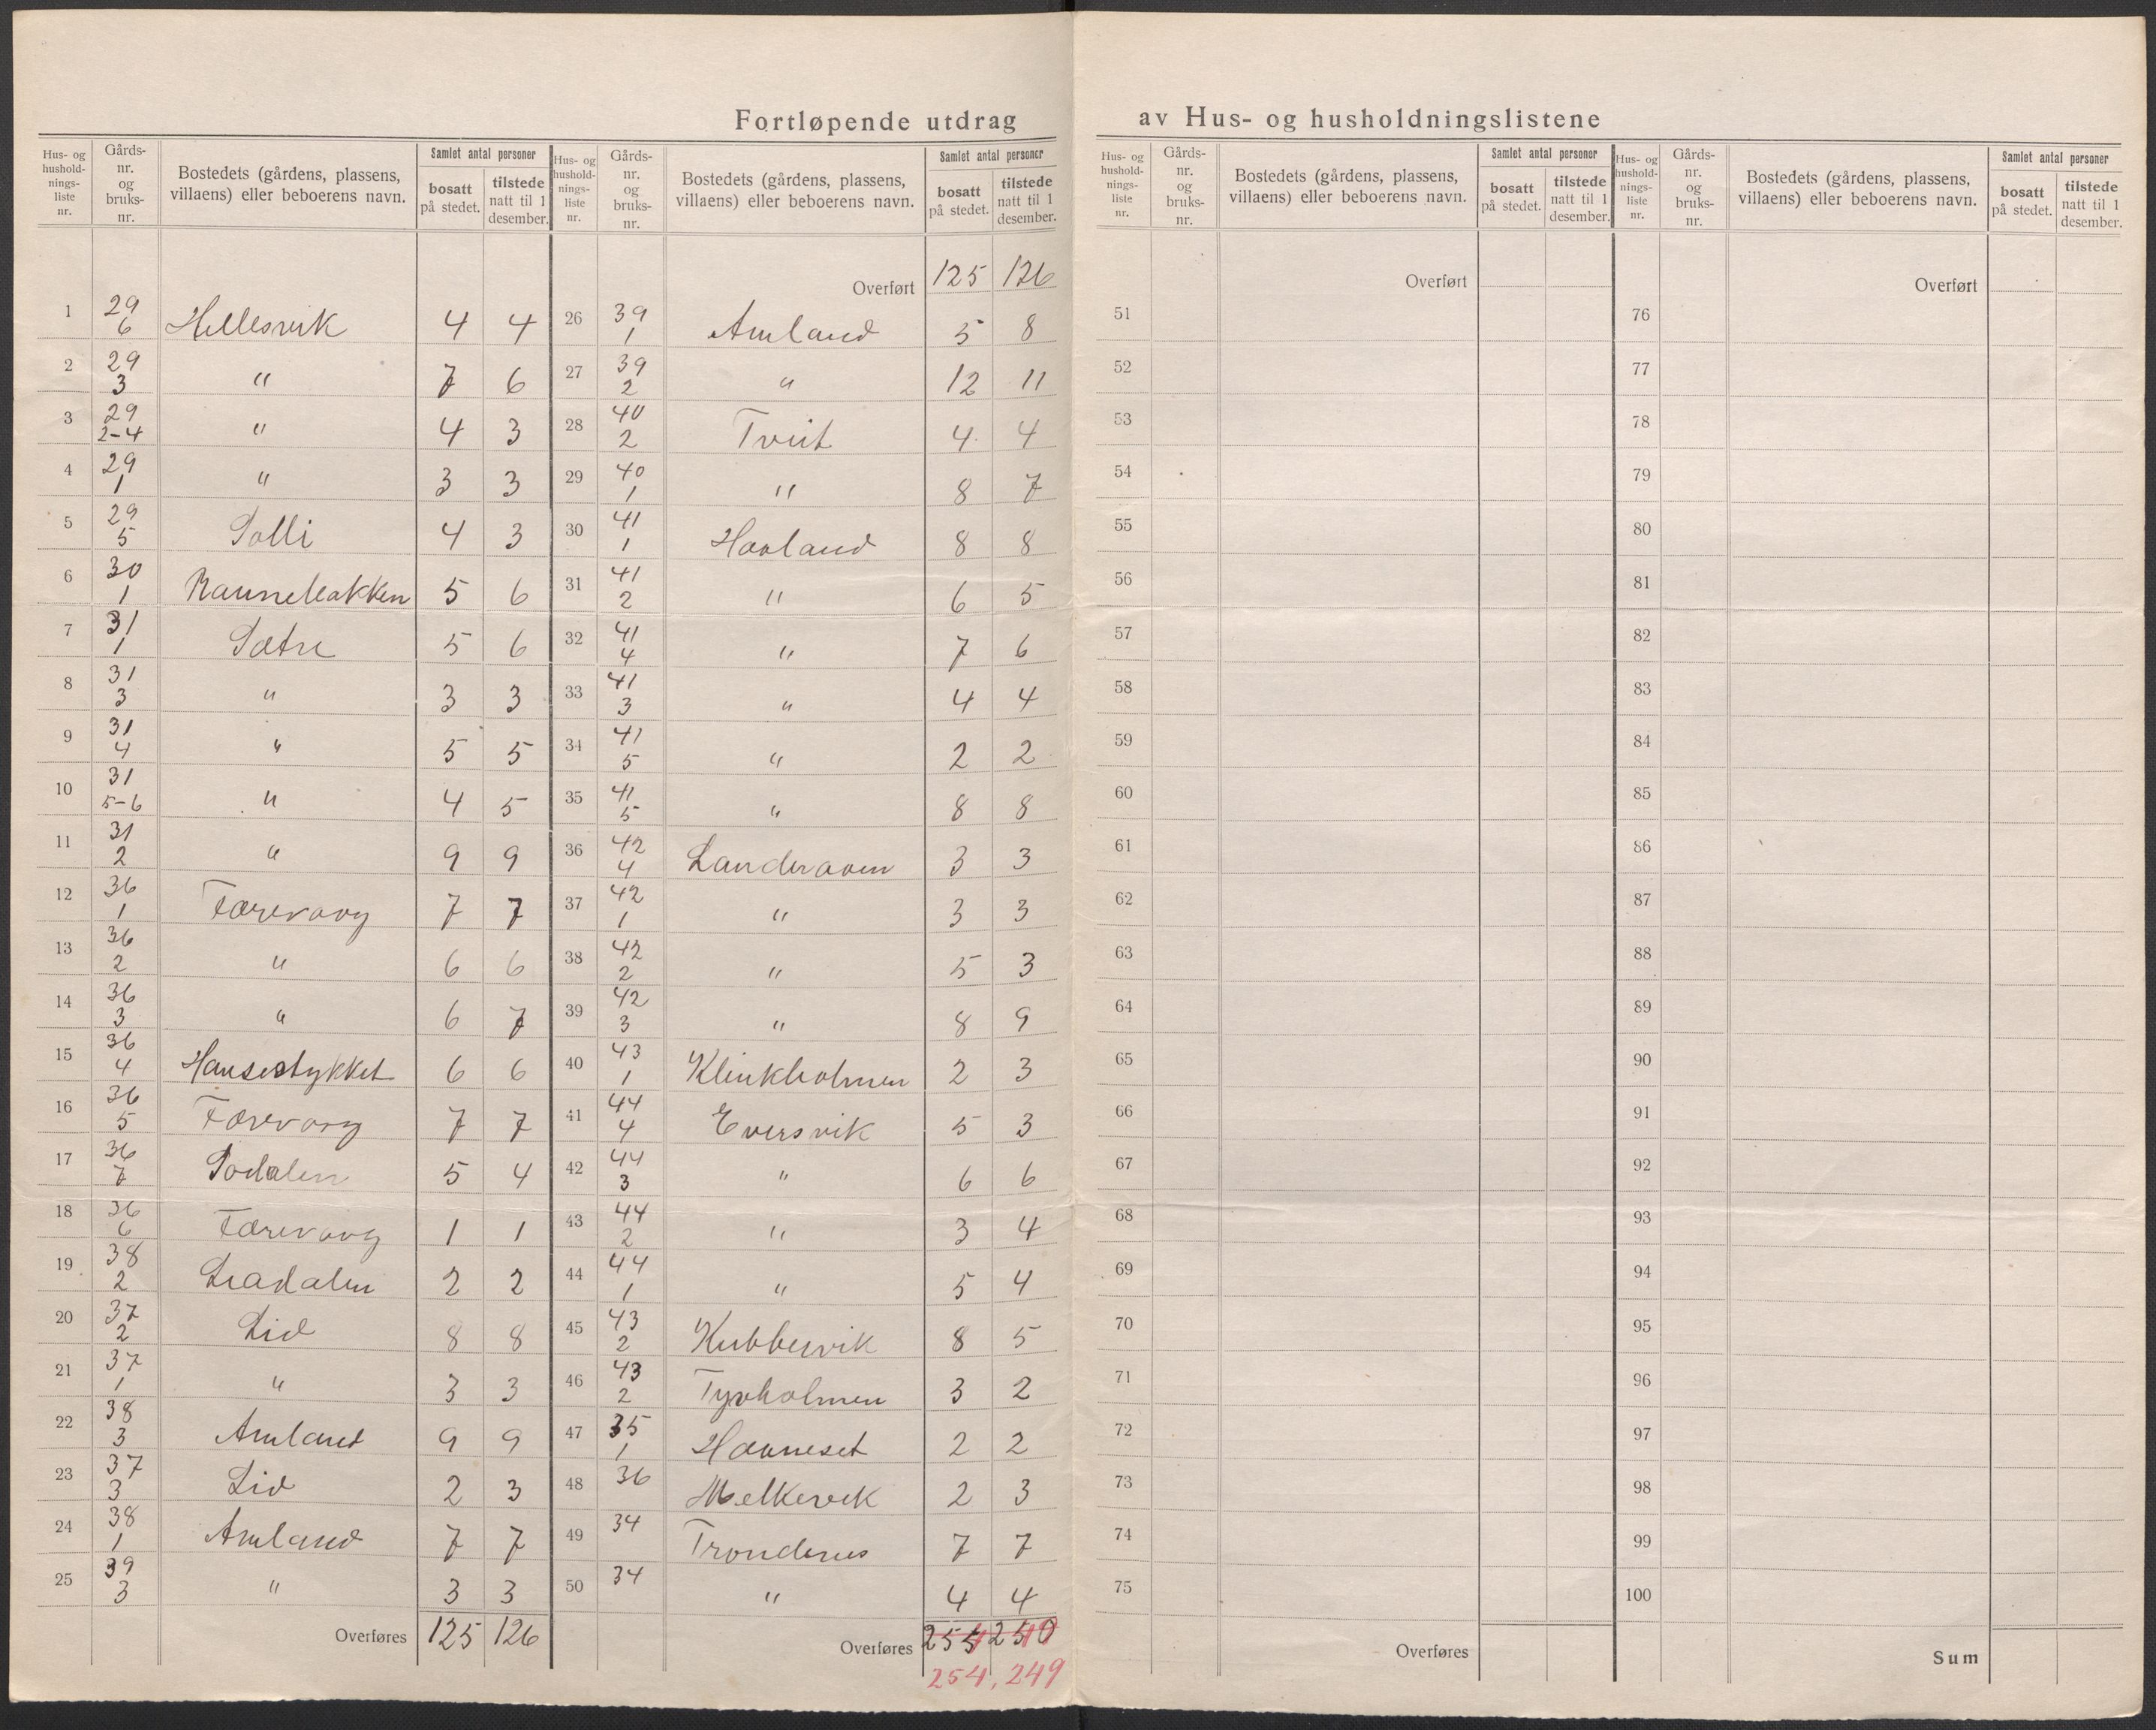 Fortløpende utdrag av Hus- og husholdningslistene
Hus- og hushold-nings-liste nr. | Gårds-nr. og bruks-nr. | Bostedets (gårdens, plassens, villaens) eller beboerens navn. | Samlet antal personer | bosatt på stedet. | tilstede natt til 1 desember.
1 29 6 Hellesvik 4 4
2 29 3 " 7 6
3 29 2-4 " 4 3
4 29 1 " 3 3
5 29 5 Solli 4 3
6 30 1 Raunebakken 5 6
7 31 1 Sætre 5 6
8 31 3 " 3 3
9 31 4 " 5 5
10 31 5-6 " 4 5
11 31 2 " 9 9
12 36 1 Færevaag 7 7
13 36 2 " 6 6
14 36 3 " 6 7
15 36 4 Hansestykket 6 6
16 36 5 Færevaag 7 7
17 36 7 Sodalen 5 4
18 36 6 Færevaag 1 1
19 38 2 Liadalen 2 2
20 37 2 Lid 8 8
21 37 1 " 3 3
22 38 3 Amland 9 9
23 37 3 Lid 2 3
24 38 1 Amland 7 7
25 39 3 " 3 3
Overføres 125 126
Hus- og hushold-nings-liste nr. | Gårds-nr. og bruks-nr. | Bostedets (gårdens, plassens, villaens) eller beboerens navn. | Samlet antal personer | bosatt på stedet. | tilstede natt til 1 desember.
Overført 125 126
26 39 1 Amland 5 8
27 39 2 " 12 11
28 40 2 Tveit 4 4
29 40 1 " 8 7
30 41 1 Haaland 8 8
31 41 2 " 6 5
32 41 4 " 7 6
33 41 3 " 4 4
34 41 5 " 2 2
35 41 5 " 8 8
36 42 4 Landeraaen 3 3
37 42 1 " 3 3
38 42 2 " 5 3
39 42 3 " 8 9
40 43 1 Klinkholmen 2 3
41 44 4 Eversvik 5 3
42 44 3 " 6 6
43 44 2 " 3 4
44 44 1 " 5 4
45 43 2 Kubbervik 8 5
46 43 2 Tyvholmen 3 2
47 35 1 Havneset 2 2
48 36 Melkevik 2 3
49 34 Trondenes 7 7
50 34 " 4 4
Overføres 254 250
254, 249
Hus- og hushold-nings-liste nr. | Gårds-nr. og bruks-nr. | Bostedets (gårdens, plassens, villaens) eller beboerens navn. | Samlet antal personer | bosatt på stedet. | tilstede natt til 1 desember.
Overført
51
52
53
54
55
56
57
58
59
60
61
62
63
64
65
66
67
68
69
70
71
72
73
74
75
Overføres
Hus- og hushold-nings-liste nr. | Gårds-nr. og bruks-nr. | Bostedets (gårdens, plassens, villaens) eller beboerens navn. | Samlet antal personer | bosatt på stedet. | tilstede natt til 1 desember.
Overført
76
77
78
79
80
81
82
83
84
85
86
87
88
89
90
91
92
93
94
95
96
97
98
99
100
Sum